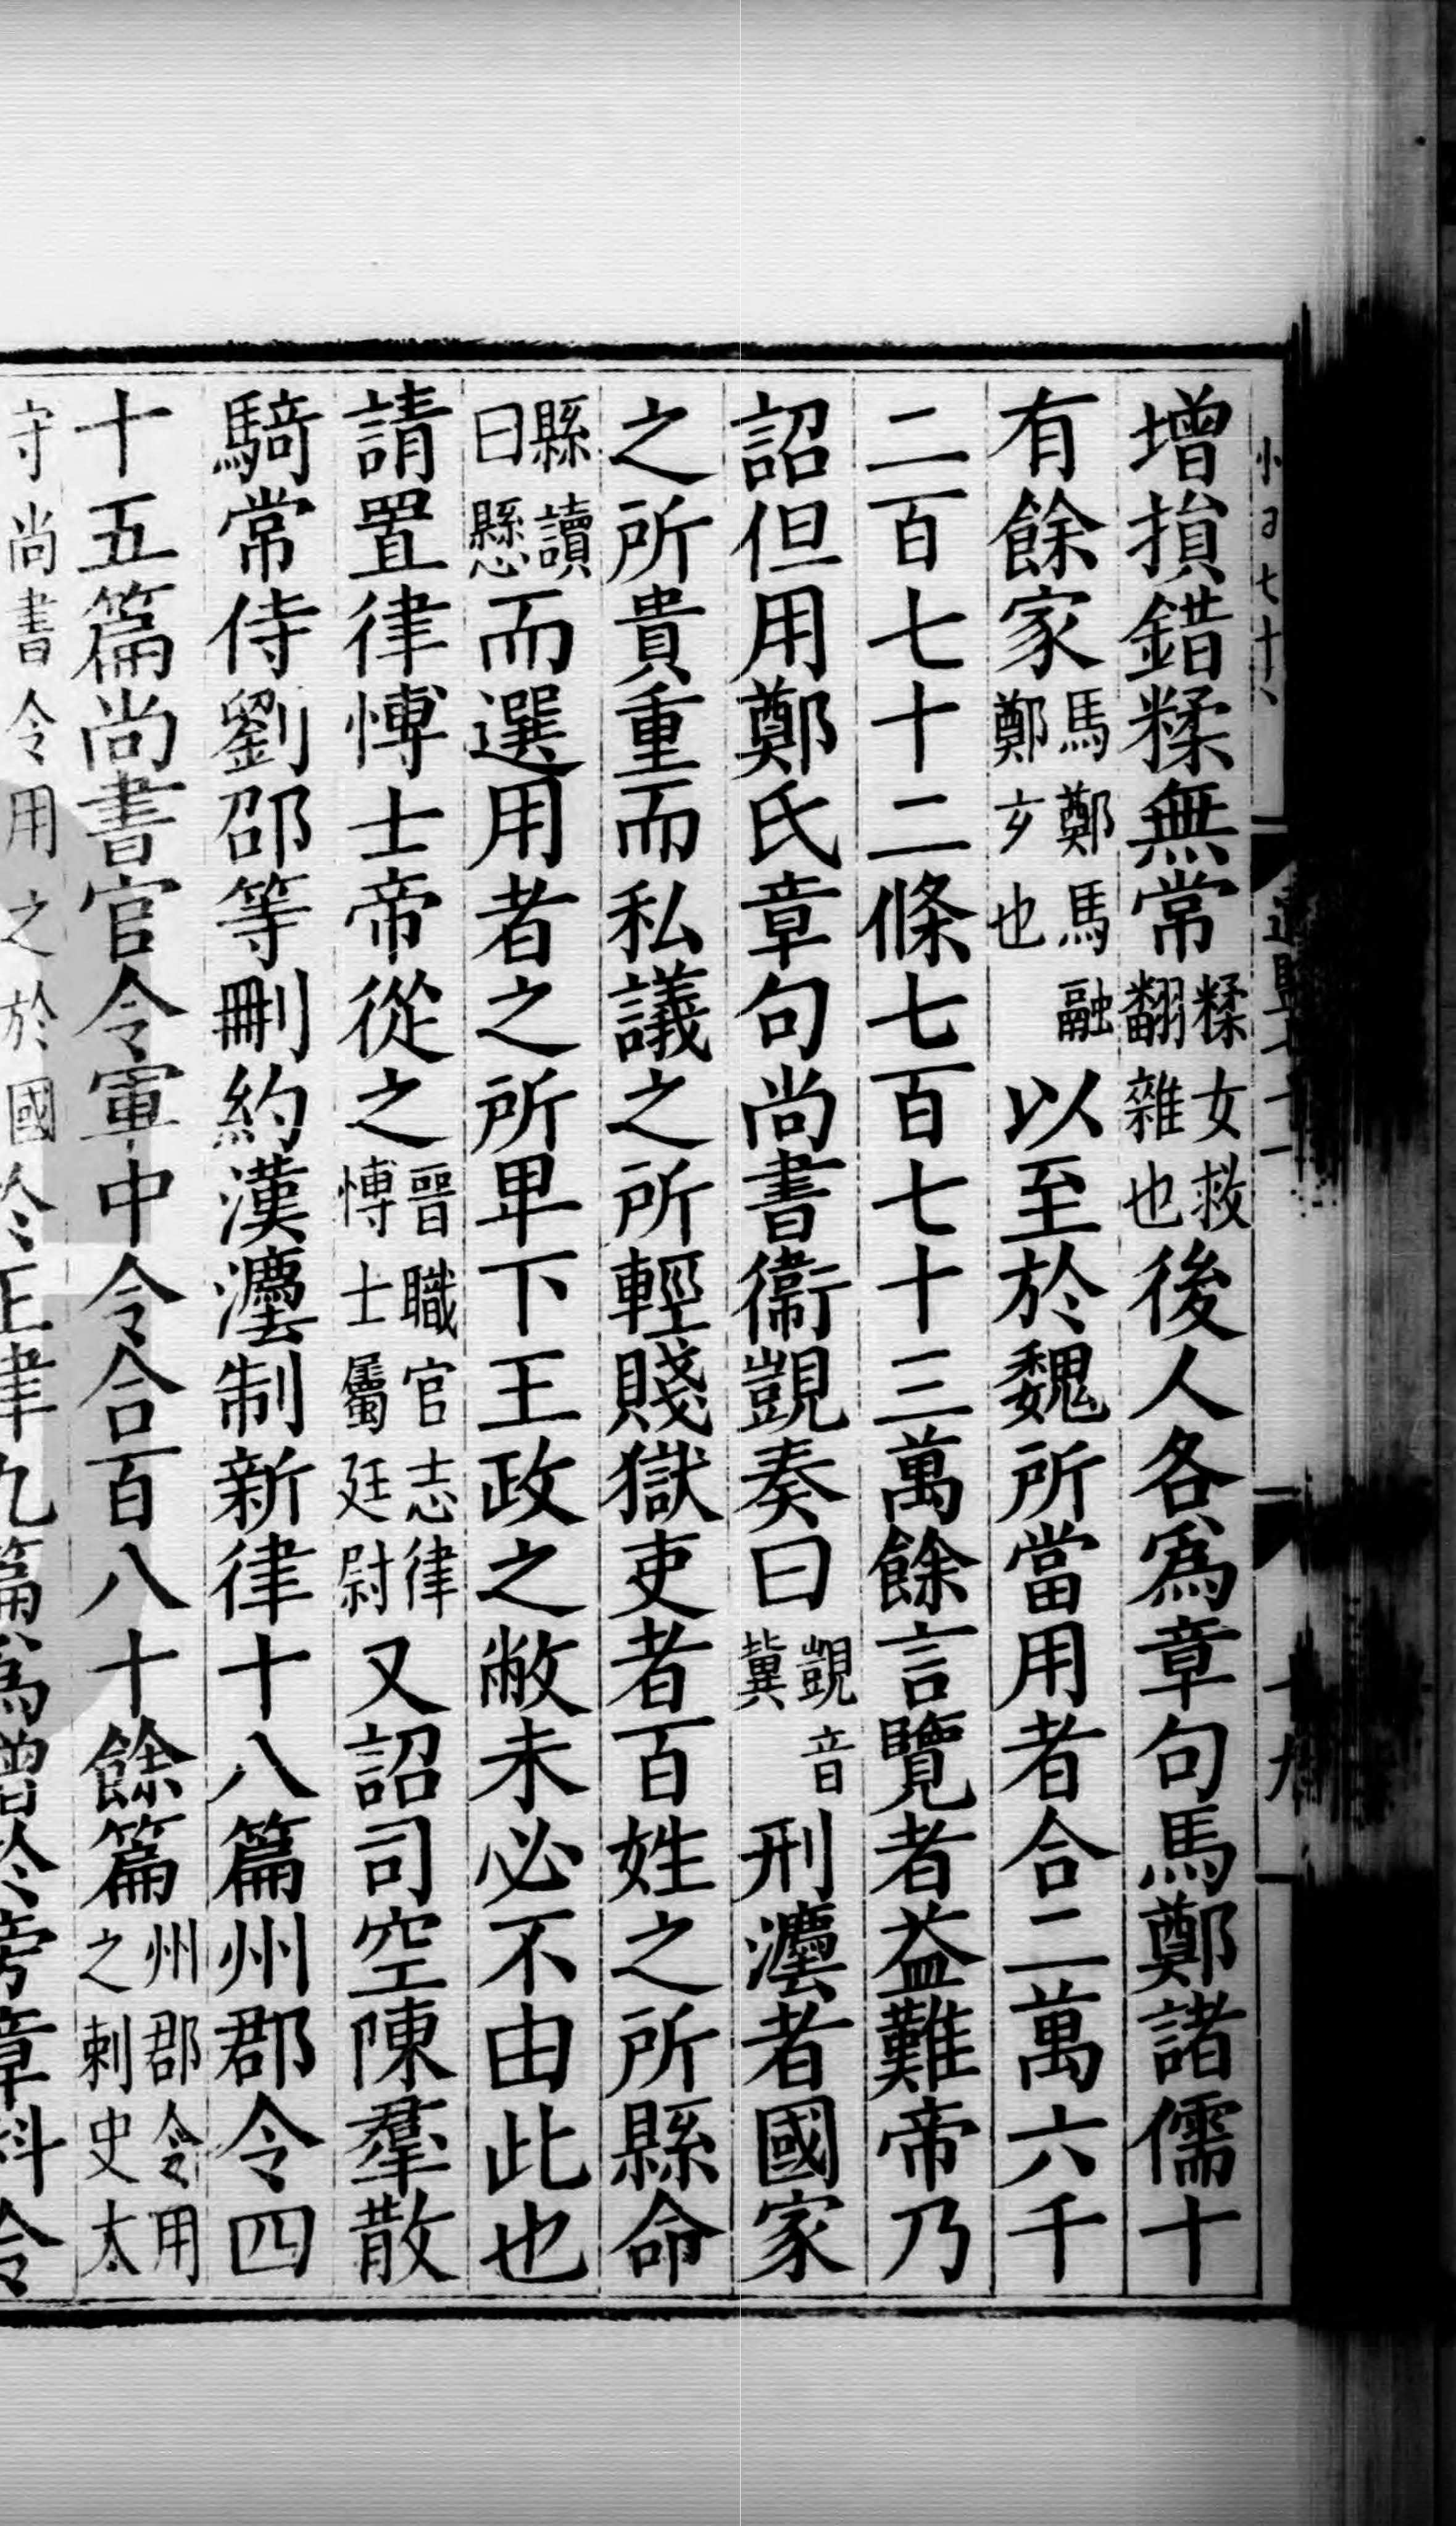 增損錯糅無常糅女救翻雜也後人各爲章句馬鄭諸儒十
有餘家馬鄭馬融鄭玄也以至於魏所當用者合二萬六千
二百七十二條七百七十三萬餘言覽者益難帝乃
詔但用鄭氏章句尚書衞覬奏曰覬音冀刑灋者國家
之所貴重而私議之所輕賤獄吏者百姓之所縣命
縣讀曰懸而選用者之所卑下王政之敝未必不由此也
請置律博士帝從之晉職官志律博士屬廷尉又詔司空陳羣散
騎常侍劉邵等刪約漢灋制新律十八篇州郡令四
十五篇尚書官令軍中令合百八十餘篇州郡令用之刺史太
守尚書令用之於國